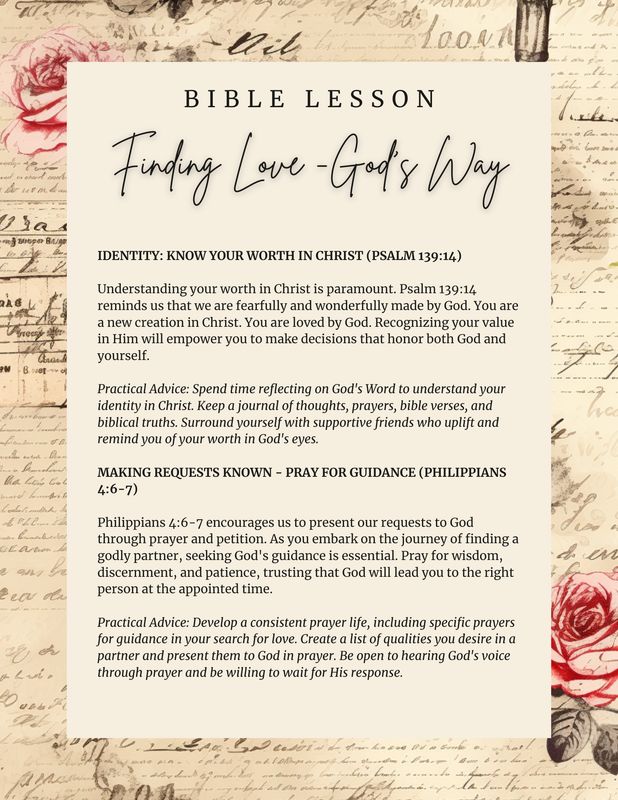 Ail
loovn
BIBLE LESSON
Finding Love -God's Way
IDENTITY: KNOW YOUR WORTH IN CHRIST (PSALM 139:14)
Understanding your worth in Christ is paramount. Psalm 139:14
reminds us that we are fearfully and wonderfully made by God. You are
a new creation in Christ. You are loved by God. Recognizing your value
in Him will empower you to make decisions that honor both God and
yourself.
Practical Advice: Spend time reflecting on God's Word to understand your
identity in Christ. Keep a journal of thoughts, prayers, bible verses, and
biblical truths. Surround yourself with supportive friends who uplift and
remind you of your worth in God's eyes.
MAKING REQUESTS KNOWN - PRAY FOR GUIDANCE (PHILIPPIANS
4:6-7)
Philippians 4:6-7 encourages us to present our requests to God
through prayer and petition. As you embark on the journey of finding a
godly partner, seeking God's guidance is essential. Pray for wisdom,
discernment, and patience, trusting that God will lead you to the right
person at the appointed time.
Practical Advice: Develop a consistent prayer life, including specific prayers
for guidance in your search for love. Create a list of qualities you desire in a
partner and present them to God in prayer. Be open to hearing God's voice
through prayer and be willing to wait for His response.